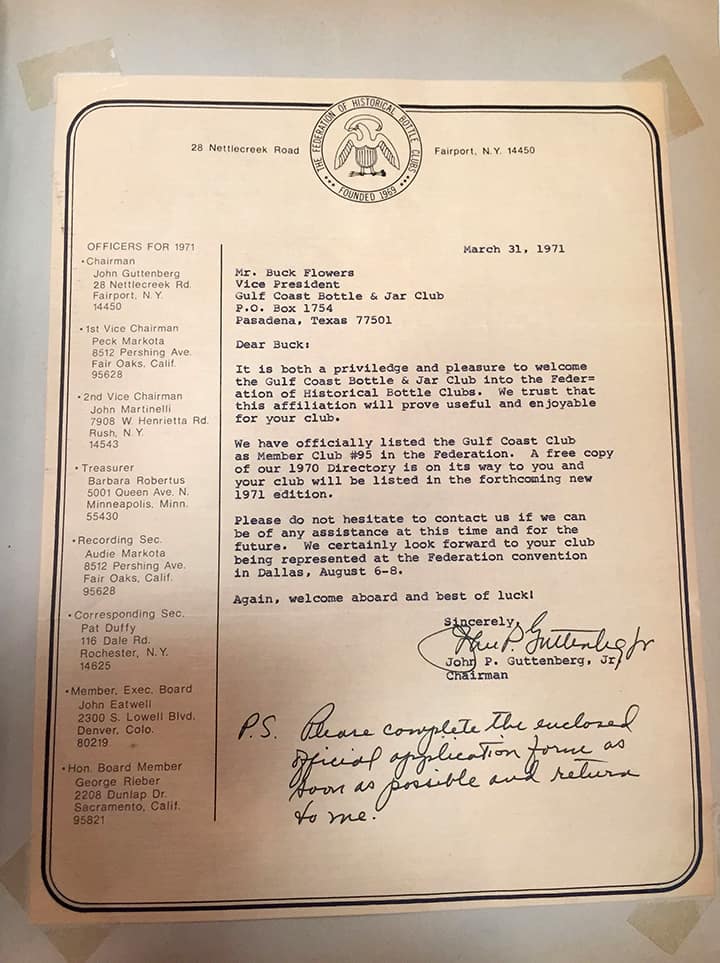 THE FEDERATION OF HISTORICAL BOTTLE CLUBS
FOUNDED 1969
28 Nettlecreek Road
Fairport, N.Y. 14450
OFFICERS FOR 1971
•Chairman
John Guttenberg
28 Nettlecreek Rd.
Fairport, N.Y.
14450
•1st Vice Chairman
Peck Markota
8512 Pershing Ave.
Fair Oaks, Calif.
95628
•2nd Vice Chairman
John Martinelli
7908 W. Henrietta Rd.
Rush, N.Y.
14543
•Treasurer
Barbara Robertus
5001 Queen Ave. N.
Minneapolis, Minn.
55430
•Recording Sec.
Audie Markota
8512 Pershing Ave.
Fair Oaks, Calif.
95628
•Corresponding Sec.
Pat Duffy
116 Dale Rd.
Rochester, N.Y.
14625
•Member, Exec. Board
John Eatwell
2300 S. Lowell Blvd.
Denver, Colo.
80219
•Hon. Board Member
George Rieber
2208 Dunlap Dr.
Sacramento, Calif.
95821
March 31, 1971
Mr. Buck Flowers
Vice President
Gulf Coast Bottle & Jar Club
P.O. Box 1754
Pasadena, Texas 77501
Dear Buck:
It is both a priviledge and pleasure to welcome
the Gulf Coast Bottle & Jar Club into the Feder=
ation of Historical Bottle Clubs. We trust that
this affiliation will prove useful and enjoyable
for your club.
We have officially listed the Gulf Coast Club
as Member Club #95 in the Federation. A free copy
of our 1970 Directory is on its way to you and
your club will be listed in the forthcoming new
1971 edition.
Please do not hesitate to contact us if we can
be of any assistance at this time and for the
future. We certainly look forward to your club
being represented at the Federation convention
in Dallas, August 6-8.
Again, welcome aboard and best of luck!
Sincerely,
John P. Guttenberg Jr
John P. Guttenberg, Jr,
Chairman
P.S. Please complete the enclosed
official application form as
soon as possible and return
to me.